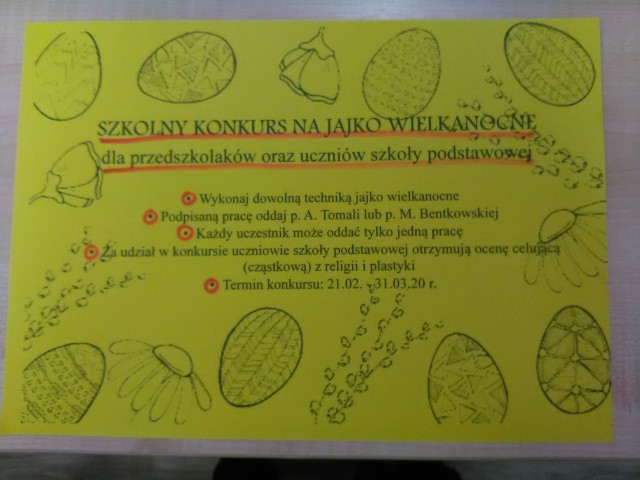 SZKOLNY KONKURS NA JAJKO WIELKANOCNE
dla przedszkolaków oraz uczniów szkoły podstawowej
• Wykonaj dowolną techniką jajko wielkanocne
• Podpisaną pracę oddaj p. A. Tomali lub p. M. Bentkowskiej
• Każdy uczestnik może oddać tylko jedną pracę
• Za udział w konkursie uczniowie szkoły podstawowej otrzymują ocenę celującą
(cząstkową) z religii i plastyki
• Termin konkursu: 21.02. - 31.03.20 r.